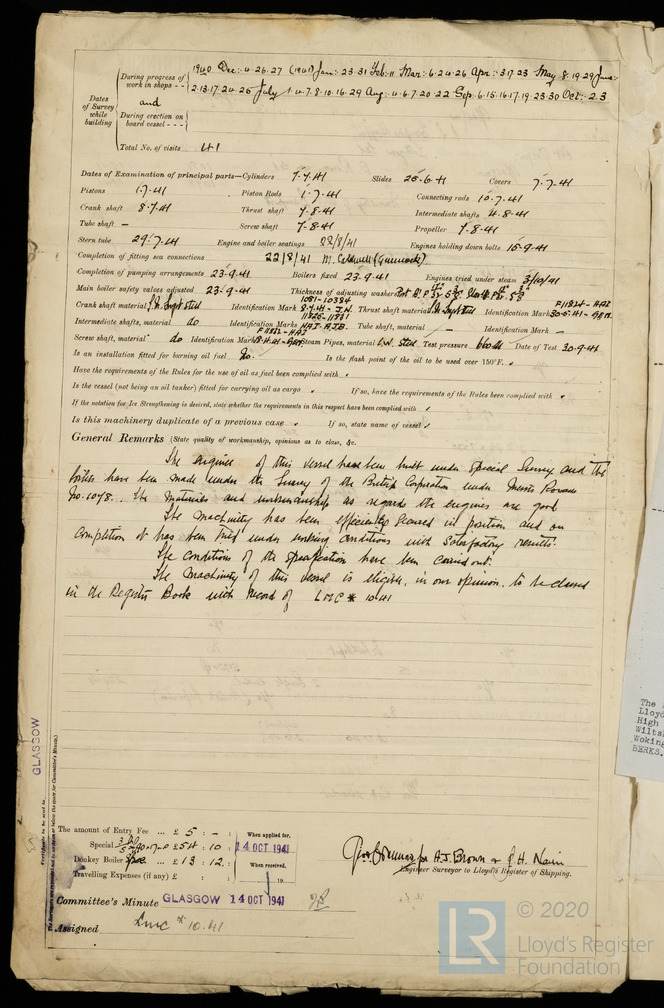 Dates of Survey while building
During progress of work in shops - - 1940 Dec: 4.26.27 (1941) Jan: 23.31 Feb: 11 Mar: 6.24.26 Apr: 3.17.23 May 8.19.29 June:
2.13.17.24.25 July 1.4.7.8.10.16.29 Aug: 4.6.7.20.22 Sep: 6.15.16.17.19.23.30 Oct: 2.3
and
During erection on board vessel - - -
Total No. of visits 41
Dates of Examination of principal parts—Cylinders 7.7.41 Slides 25.6.41 Covers 7.7.41
Pistons 1.7.41 Piston Rods 1.7.41 Connecting rods 10.7.41
Crank shaft 8.7.41 Thrust shaft 7.8.41 Intermediate shafts 4.8.41
Tube shaft — Screw shaft 7.8.41 Propeller 7.8.41
Stern tube 29.7.41 Engine and boiler seatings 22/8/41 Engines holding down bolts 15.9.41
Completion of fitting sea connections 22/8/41 M. Caldwell (Greenock)
Completion of pumping arrangements 23.9.41 Boilers fixed 23.9.41 Engines tried under steam 3/10/41
Main boiler safety valves adjusted 23.9.41 Thickness of adjusting washers
Crank shaft material Ingot steel Identification Mark 8.7.41 Thrust shaft material Ingot steel Identification Mark 30.5.41
Intermediate shafts, material do Identification Marks Tube shaft, material — Identification Mark —
Screw shaft, material do Identification Mark Steam Pipes, material steel Test pressure Date of Test 30.9.41
Is an installation fitted for burning oil fuel No. Is the flash point of the oil to be used over 150°F. ✓
Have the requirements of the Rules for the use of oil as fuel been complied with ✓
Is the vessel (not being an oil tanker) fitted for carrying oil as cargo ✓ If so, have the requirements of the Rules been complied with ✓
If the notation for Ice Strengthening is desired, state whether the requirements in this respect have been complied with ✓
Is this machinery duplicate of a previous case ✓ If so, state name of vessel ✓
General Remarks (State quality of workmanship, opinions as to class, &c.
The engines of this vessel have been built under Special Survey and the
boilers have been made under the Survey of the British Corporation under Messrs Rowans
No. 1078. The materials and workmanship as regards the engines are good
The machinery has been efficiently secured in position and on
completion it has been tried under working conditions with satisfactory results.
The conditions of the specification have been carried out.
The machinery of this vessel is eligible, in our opinion, to be classed
in the Register Book with record of LMC * 10.41
GLASGOW
The amount of Entry Fee ... £ 5 : - :
Special £ 54 : 10 :
Donkey Boiler Fee ... £ 13 : 12 :
Travelling Expenses (if any) £ : :
When applied for,
14 OCT 1941
When received,
19
for A.J. Brown & J.H. Nairn
Engineer Surveyor to Lloyd's Register of Shipping.
Committee's Minute GLASGOW 14 OCT 1941
Assigned LMC * 10.41
The
Lloyd
High
Wilts
Woking
BERKS.
© 2020
LR
Lloyd's Register
Foundation